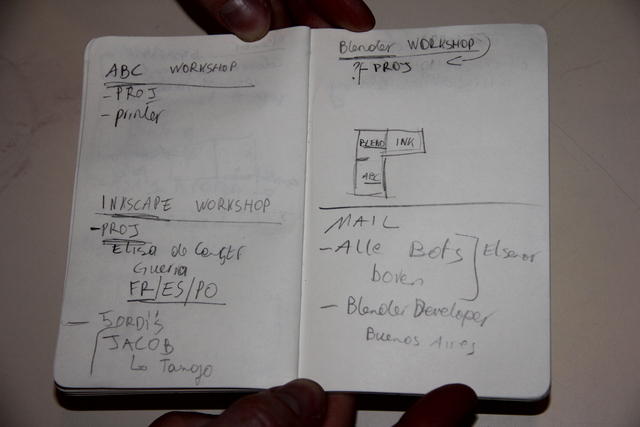 ABC WORKSHOP
- PROJ
- printer
INKSCAPE WORKSHOP
- PROJ
Elisa de
Guerra
FR/ES/PO
JACOB
Lo Tango
Blender WORKSHOP
PROJ
BLEND INK
ABC
MAIL
- Alle Bots
boven
- Blender Developer
Buenos Aires